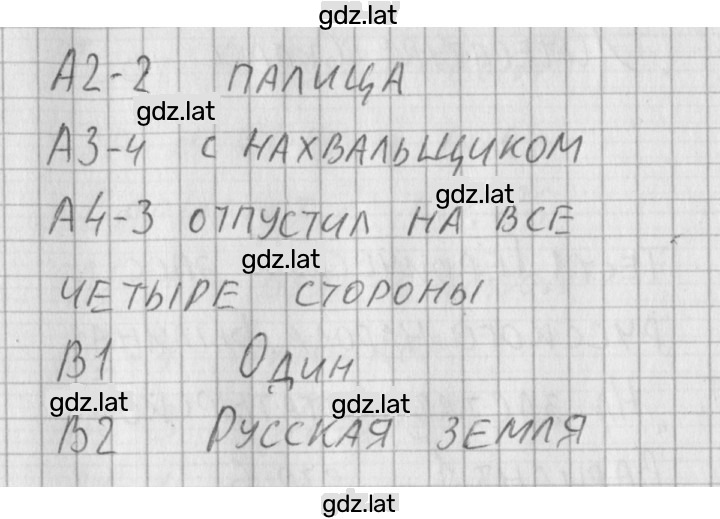 gdz.lat
А2-2 ПАЛИЦА
gdz.lat
А3-4 С НАХВАЛЬЩИКОМ
gdz.lat
А4-3 ОТПУСТИЛ НА ВСЕ
gdz.lat
ЧЕТЫРЕ СТОРОНЫ
В1 Один
gdz.lat gdz.lat
В2 Русская ЗЕМЛЯ
gdz.lat